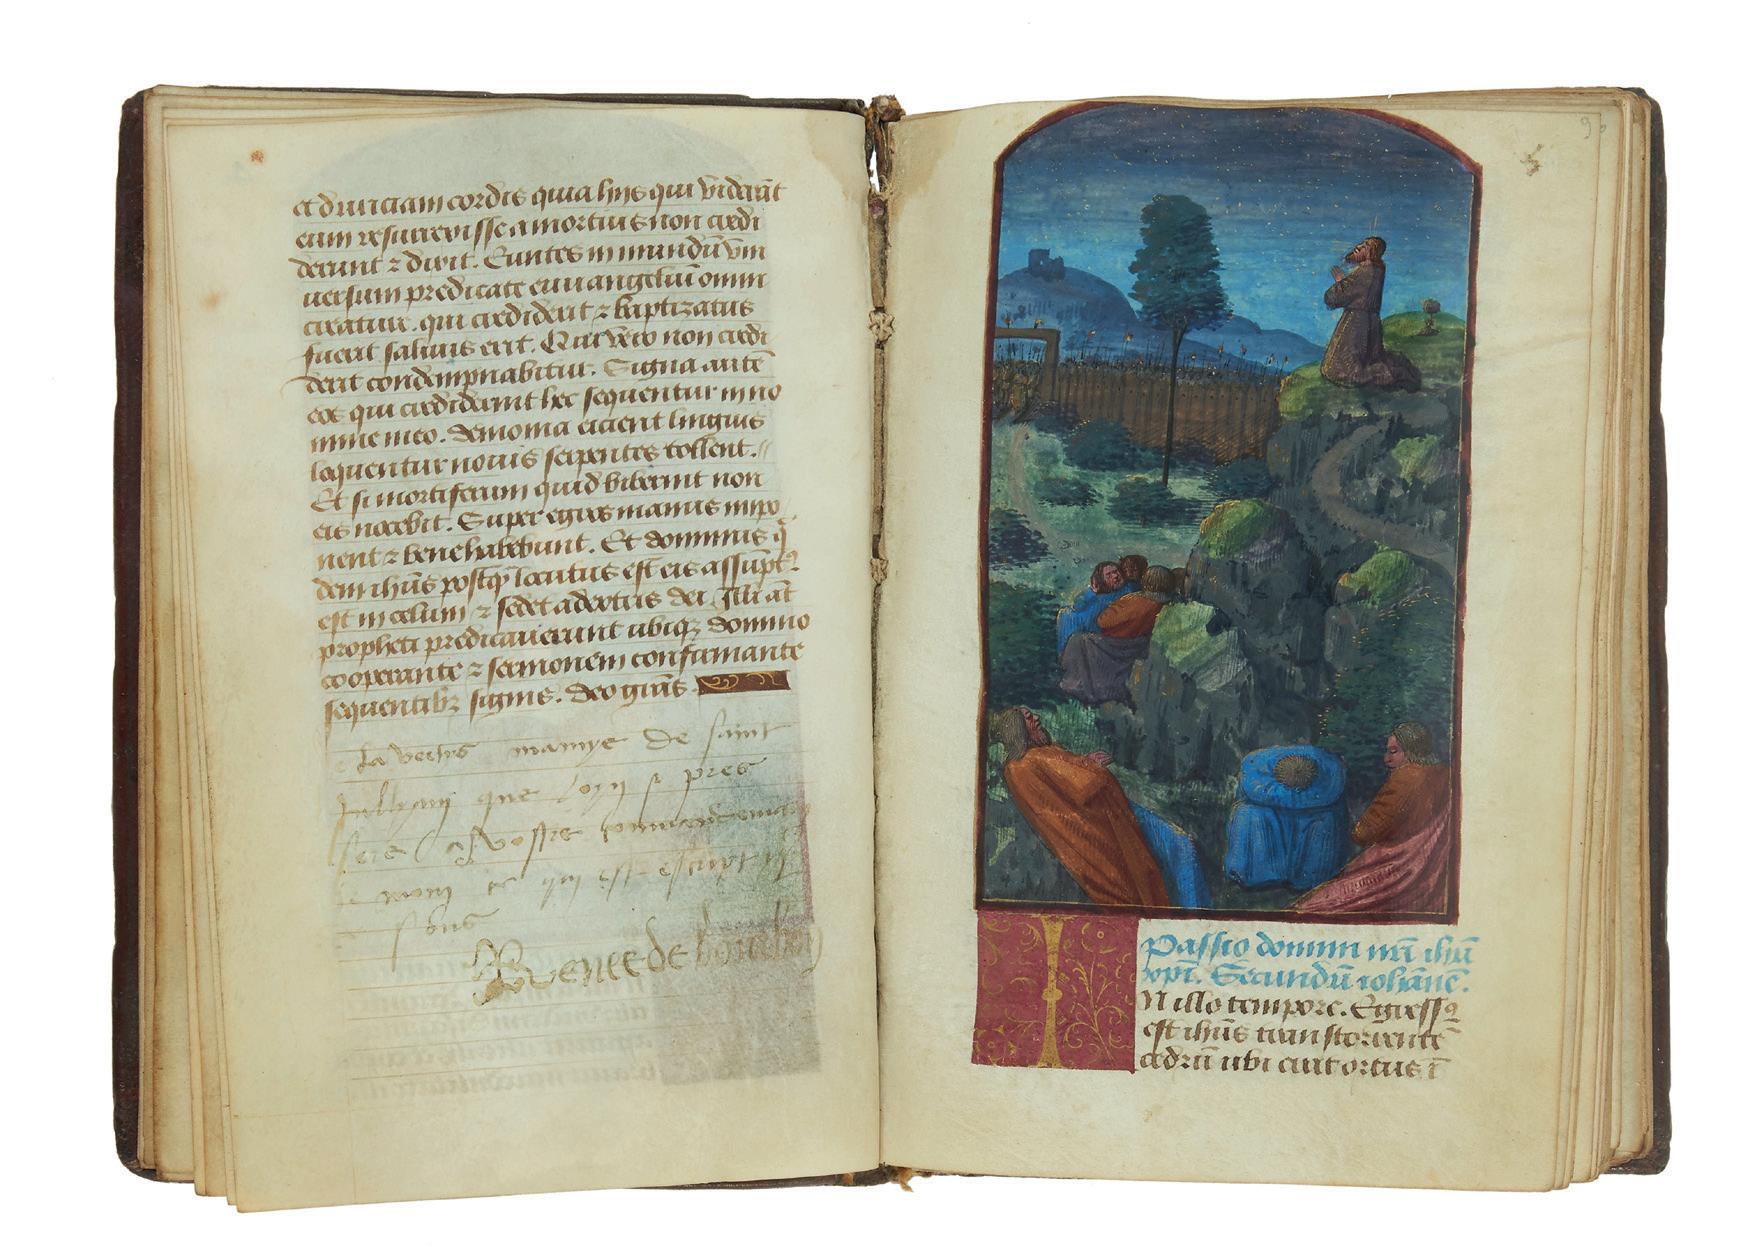 et duriciam cordis quia hijs qui viderāt
eum resurrexisse a mortuis non credi
derunt ⁊ dixit. Euntes in mundū vni
uersum predicate euuangeliū omni
creature. qui crediderit ⁊ baptizatus
fuerit saluus erit. Qui vero non credi
derit condempnabitur. Signa autē
eos qui crediderint hec sequentur in no
mine meo. demonia eicient linguis
loquentur nouis serpentes tollent.
Et si mortiferum quid biberint non
eis nocebit. Super egros manus impo
nent ⁊ bene habebunt. Et dominus q̄
dem ihūs postq̄ locutus est eis assūptꝰ
est in celum ⁊ sedet a dextris dei. Illi āt
propheti predicauerunt ubiqꝫ domino
cooperante ⁊ sermonem confirmante
sequentibꝫ signis. Deo grās.
de saint
que pres
vostre
ce qui est escript
Renee de bourbon
96
Passio domini nrī ihū
xpī. Secundū iohānē.
IN illo tempore. Egressꝰ
est ihūs trans torrentē
cedrū ubi erat ortus ī